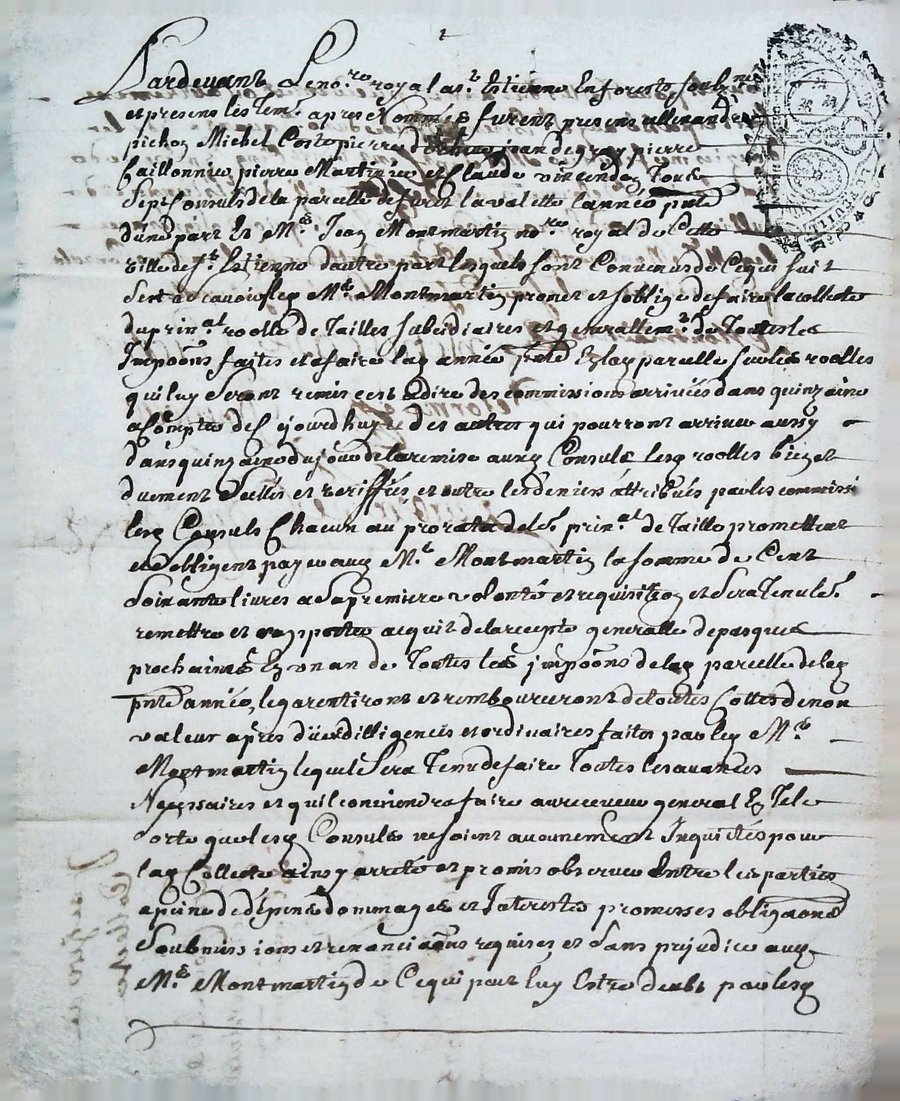 Pardevant Le no.re royal a s.t Estienne En forests soub.né
et presens les tem. apres nommés furent presens allexandre
pichon Michel Coste pierre jean degray pierre
Caillonnie pierre Martinier et Claude vincendon Tous
Sept Consuls de la parcelle de furet la valette l'année pnte
d'une part Et M.e Jean Montmartin no.re royal de Cette
ville de S.t Estienne d'autre part lesquels sont Convenus de Ce qui suit
Sest a scavoir led. M.e Montmartin promet et soblige de faire la collecte
du prin.al roolle de Tailles subsidiaires et generallem.t de Toutes les
Impoõns faites et a faire lad. année pnte En lad. parcelle sur les roolles
qui luy seront remis cest a dire des commissions arrivées dans quinzaine
a Compter de Cejourdhuy et des autres qui pourront arriver aussy
dans quinzaine du jour de la remise auxd. Consuls lesd. roolles bien et
duement scellés et veriffiés et outre les deniers attribués par les commissi
lesd. Consuls Chacun au prorata de le.s prin.al de Taille promettent
et sobligent payer aud. M.e Montmartin la somme de Cent
Soixante livres a sa premiere volonté et requisition et sera Tenu le.s
remettre et rapporter acquit de la recepte generalle de pasques
prochaines En un an de Toutes les jmpoõns de lad. parcelle de lad.
pnte année, le garentiront et rembourceront de toutes Cottes de non
valeur apres dües dilligences et ordinaires faites par led. M.e
Montmartin lequel Sera Tenu de faire Toutes les avances
Necessaires et quil conviendra faire au receveur general En Telle
sorte que lesd. Consuls ne soient aucunement Inquietés pour
lad. Collecte ainsy arreté et promis observer Entre les parties
a peine de dépens dommages et Interests promesses obligaõns
Soubmissions et renonciaõns requises, et sans prejudice aud.
M.e Montmartin de Ce qui peut luy Estre deub par lesd.